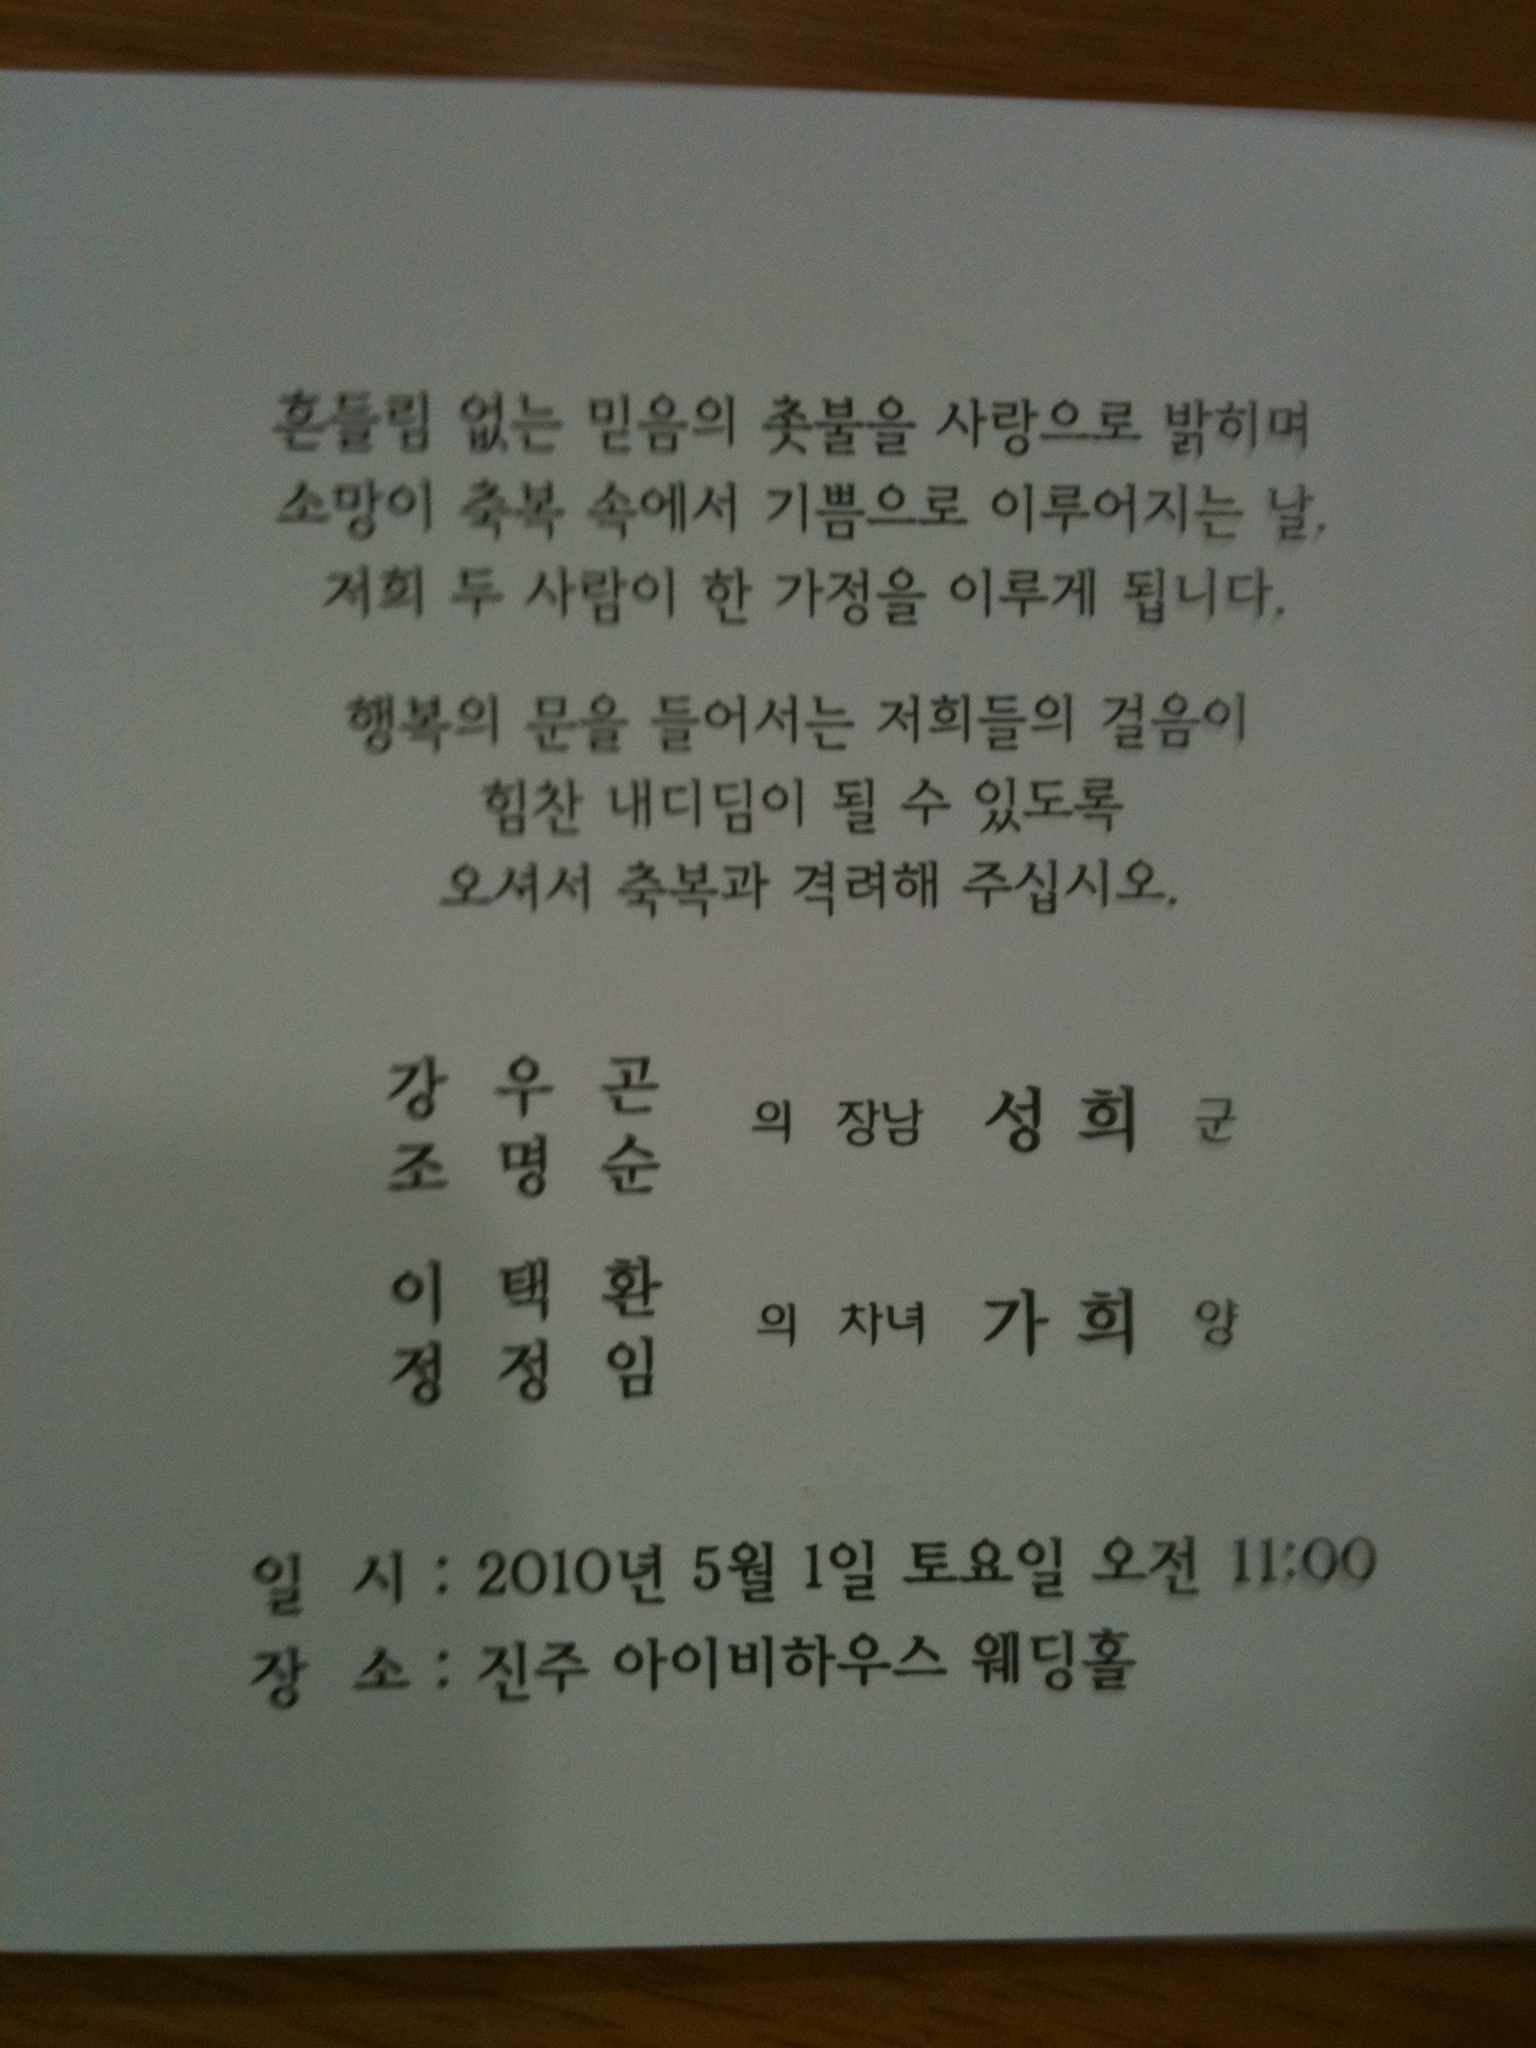 흔들림 없는 믿음의 촛불을 사랑으로 밝히며
소망이 축복 속에서 기쁨으로 이루어지는 날,
저희 두 사람이 한 가정을 이루게 됩니다.
행복의 문을 들어서는 저희들의 걸음이
힘찬 내디딤이 될 수 있도록
오셔서 축복과 격려해 주십시오.
강 우 곤
조 명 순
의 장남 성 희 군
이 택 환
정 정 임
의 차녀 가 희 양
일 시 : 2010년 5월 1일 토요일 오전 11:00
장 소 : 진주 아이비하우스 웨딩홀